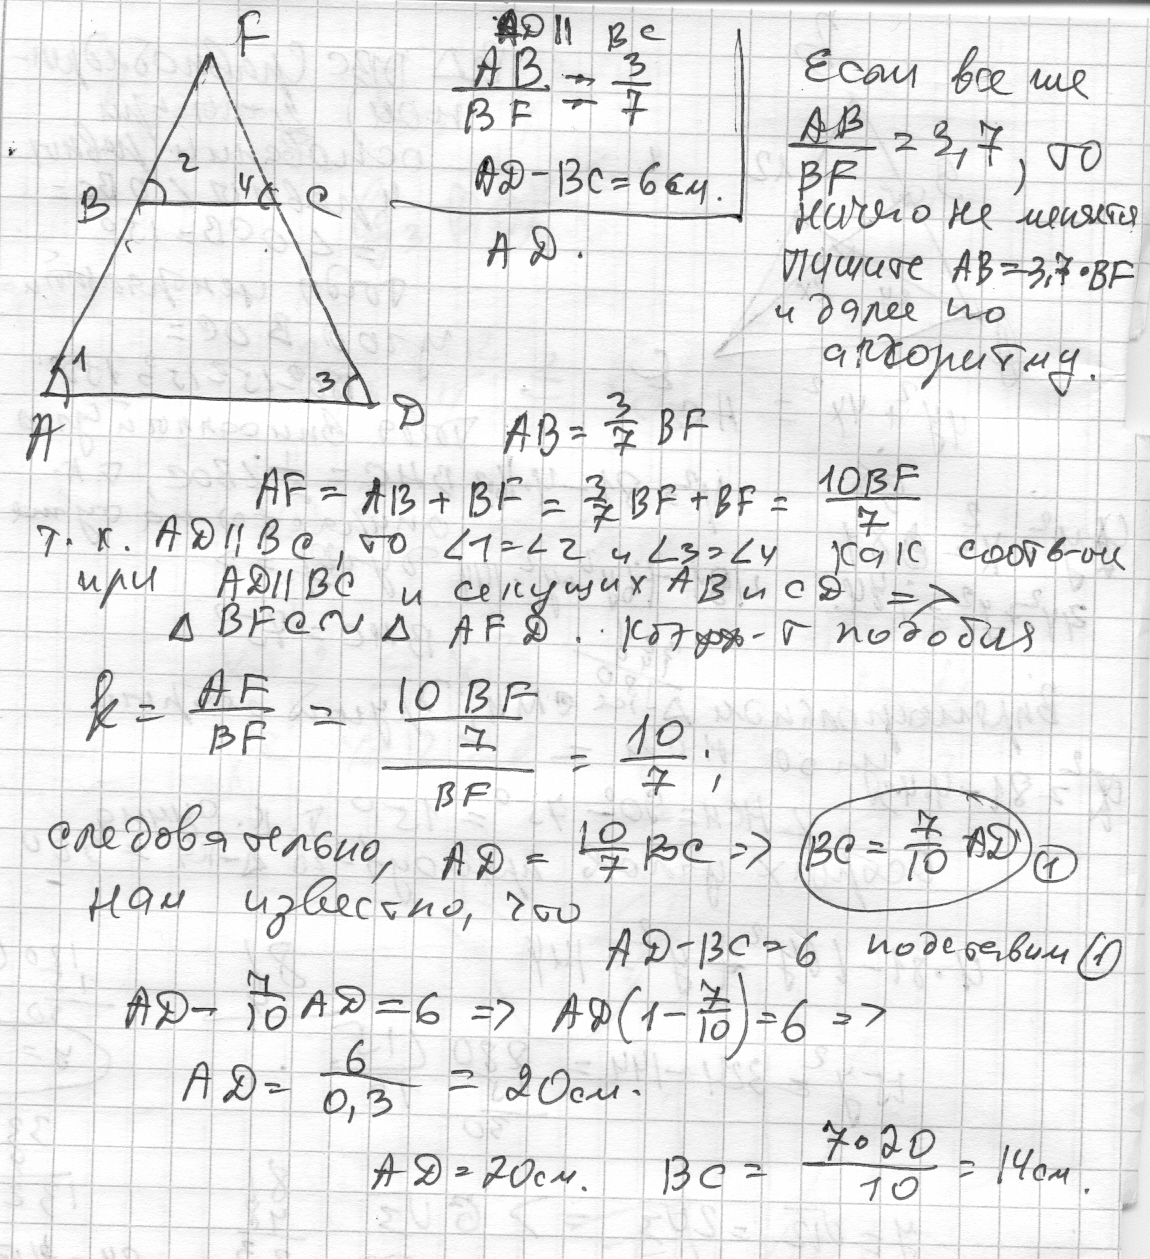 F
B 2 4 C
A 1 3 D
AD || BC
AB/BF = 3/7
AD - BC = 6 см.
AD.
Если все же
AB/BF = 3,7, то
ничего не меняется
пишите AB = 3,7 · BF
и далее по
алгоритму.
AB = 3/7 BF
AF = AB + BF = 3/7 BF + BF = 10BF/7
т.к. AD || BC, то ∠1 = ∠2 и ∠3 = ∠4 как соотв-ые
при AD || BC и секущих AB и CD =>
△ BFC ~ △ AFD. Коэфф-т подобия
k = AF/BF = (10 BF/7)/BF = 10/7;
следовательно, AD = 10/7 BC => BC = 7/10 AD (1)
Нам известно, что
AD - BC = 6 подставим (1)
AD - 7/10 AD = 6 => AD(1 - 7/10) = 6 =>
AD = 6/0,3 = 20 см.
AD = 20 см. BC = 7·20/10 = 14 см.